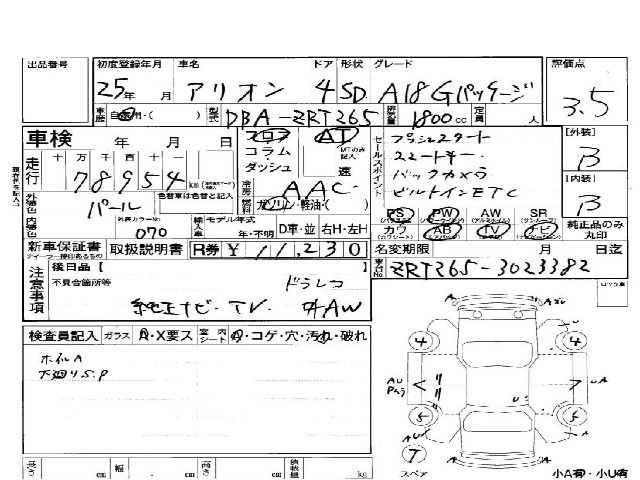 出品番号 初度登録年月 車名 ドア 形状 グレード 評価点
25年 月 アリオン 4 SD A18 Gパッケージ 3.5
車歴 自家用・( ) 型式 DBA-ZRT265 排気量 1800cc 定員 人
車検 年 月 日 フロア AT セールスポイント プッシュスタート [外装]
走行 十万千百十一 コラム・ MTのみ記入 スマートキー B
78954 km ダッシュ 速 バックカメラ [内装]
外装色 パール 色替車は色替と記入 冷房 AAC ビルトインETC B
燃料 ガソリン・軽油・( ) PS PW AW SR
内装色 外装カラーNo. 070 輸入車 モデル年式 年・不明 D車・並 右H・左H カワ AB TV ナビ 純正品のみ丸印
新車保証書 取扱説明書 R券 ¥11,230 名変期限 月 日迄
車台No ZRT265-3023382
注意事項 後日品 [ ]
不具合箇所等 ドラレコ
純正ナビ・TV 外AW
検査員記入 ガラス A・X要ス 室内シート ・コゲ・穴・汚れ・破れ
ホイルA
下廻りS.P
A Aス
4 4
AU
U A
U
5 5
AU A
T
スペア 小A有・小U有
長さ cm 幅 cm 高さ cm 積載量 kg